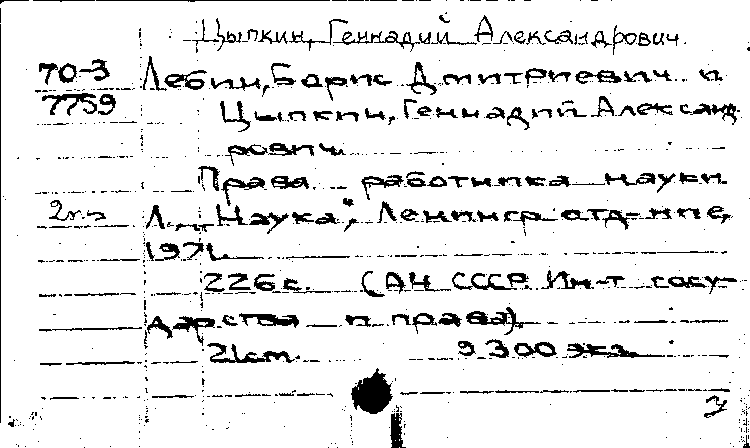 Цыпкин, Геннадий Александрович.
70-3 Лебин, Борис Дмитриевич и
7759 Цыпкин, Геннадий Александ-
рович.
Права работника науки.
Л., „Наука", Ленингр. отд-ние,
1971.
226 с. (АН СССР. Ин-т госу-
дарства и права).
21 cm. 9300 экз.